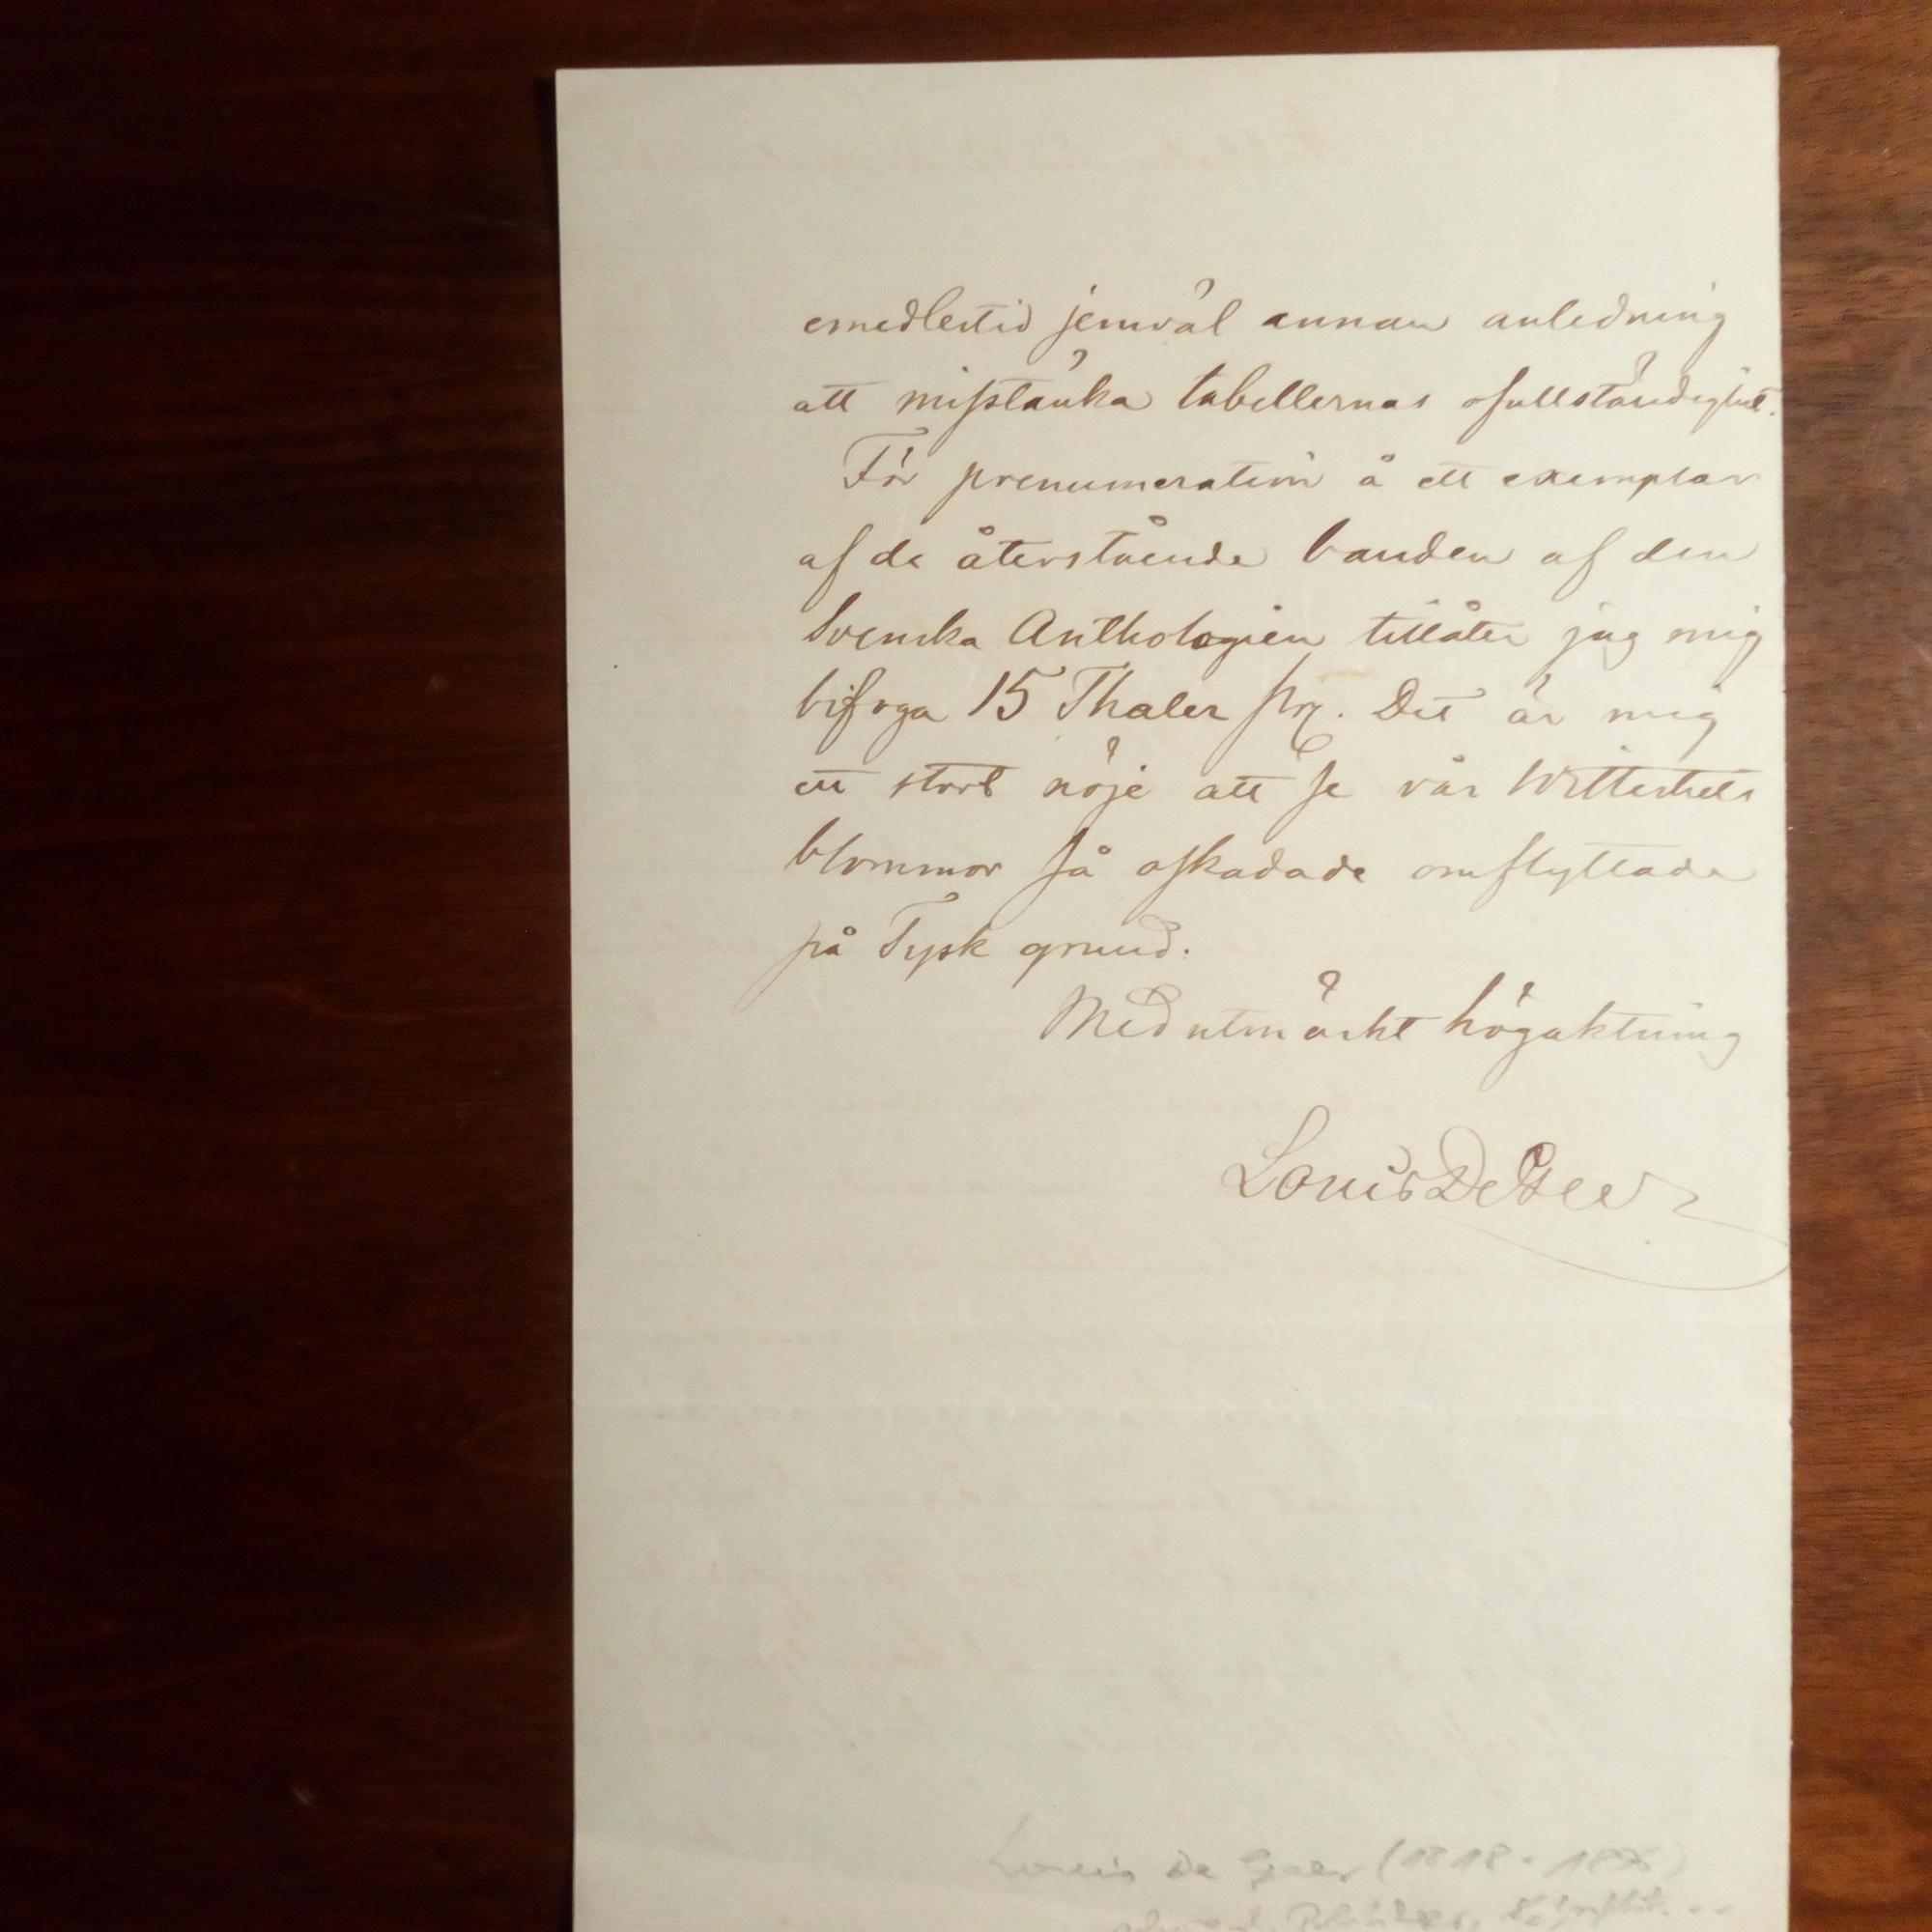 emedlertid jemväl annan anledning
att misstänka tabellernas ofullständighet.
För prenumeration å ett exemplar
af de återstående banden af den
Svenska Anthologien tillåter jag mig
bifoga 15 Thaler pr. Det är mig
ett stort nöje att se vår Witterhets
blommor så oskadade omflyttade
på Tysk grund.
Med utmärkt högaktning
Louis De Geer
Louis de Geer (1818-